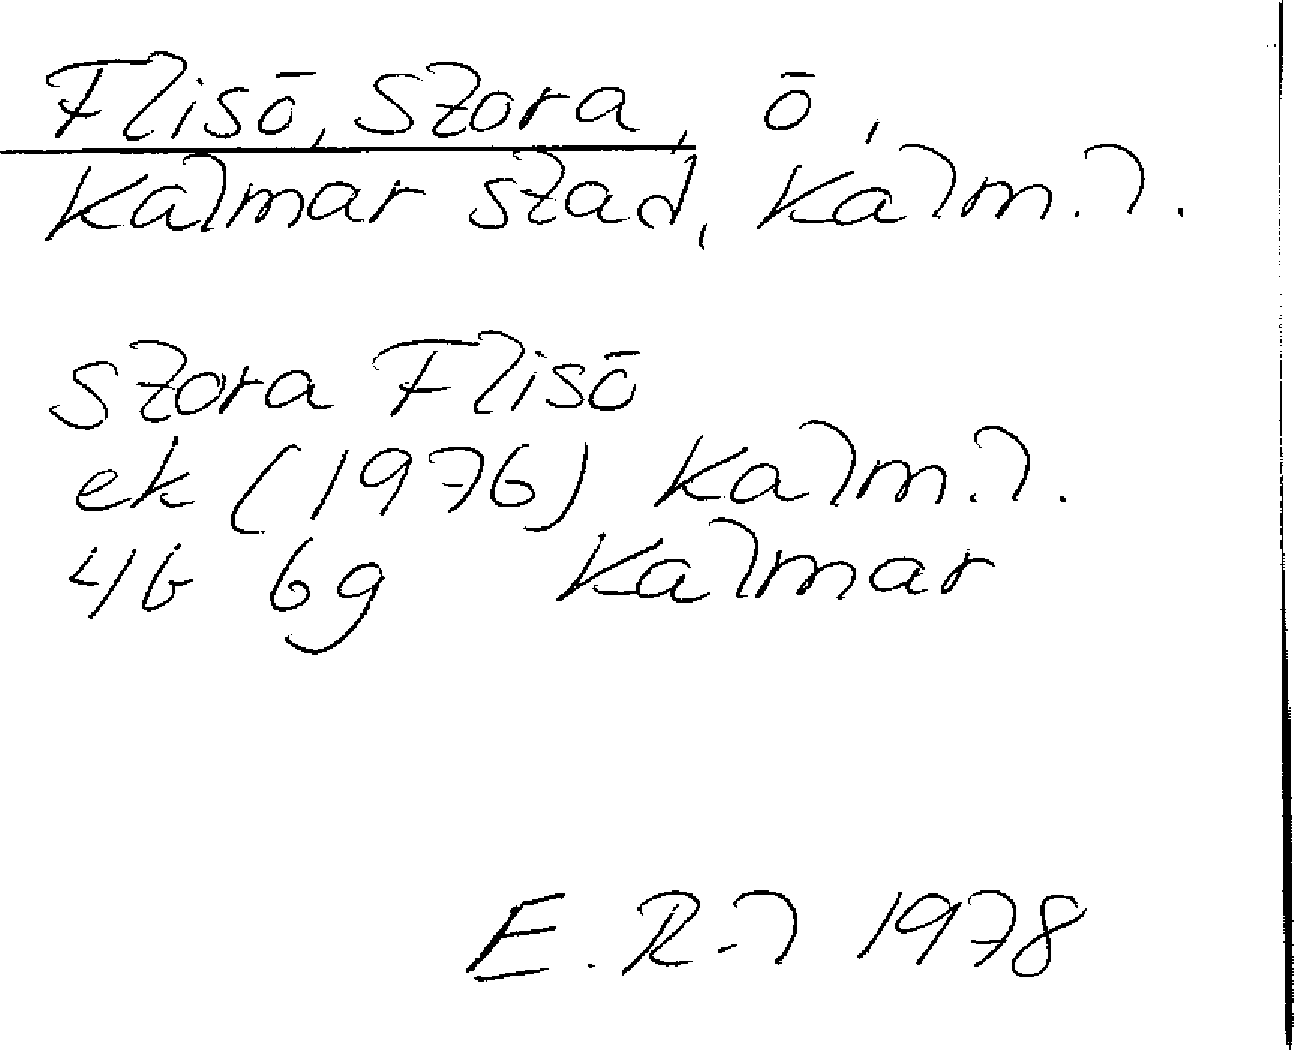 Flisö, Stora, ö,
Kalmar stad, Kalm. l.
Stora Flisö
ek (1976) Kalm. l.
4G 6g Kalmar
E. R-l 1978